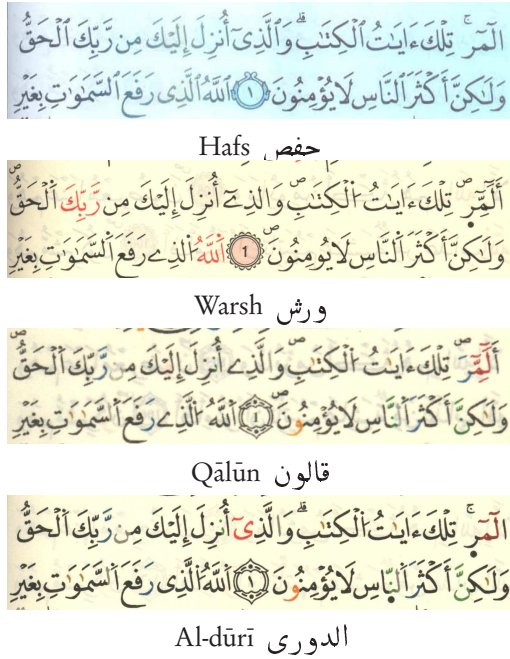 الٓمٓرۚ تِلۡكَ ءَايَٰتُ ٱلۡكِتَٰبِۗ وَٱلَّذِيٓ أُنزِلَ إِلَيۡكَ مِن رَّبِّكَ ٱلۡحَقُّ
وَلَٰكِنَّ أَكۡثَرَ ٱلنَّاسِ لَا يُؤۡمِنُونَ ١ ٱللَّهُ ٱلَّذِي رَفَعَ ٱلسَّمَٰوَٰتِ بِغَيۡرِ
Hafs حفص
أَلَٓمِّٓرۖ تِلۡكَ ءَايَٰتُ اُ۬لۡكِتَٰبِۖ وَالذِےٓ أُنزِلَ إِلَيۡكَ مِن رَّبِّكَ اَ۬لۡحَقُّ
وَلَٰكِنَّ أَكۡثَرَ اَ۬لنَّاسِ لَا يُومِنُونَۖ 1 اَ۬للَّهُ اُ۬لذِے رَفَعَ اَ۬لسَّمَٰوَٰتِ بِغَيۡرِ
Warsh ورش
أَلَٓمِّٓرۖ تِلۡكَ ءَايَٰتُ اُ۬لۡكِتَٰبِۖ وَالَّذِے أُنزِلَ إِلَيۡكَ مِن رَّبِّكَ اَ۬لۡحَقُّ
وَلَٰكِنَّ أَكۡثَرَ اَ۬لنَّاسِ لَا يُؤۡمِنُونَۖ 1 اَ۬للَّهُ اُ۬لَّذِے رَفَعَ اَ۬لسَّمَٰوَٰتِ بِغَيۡرِ
Qālūn قالون
الٓمٓرۚ تِلۡكَ ءَايَٰتُ اُ۬لۡكِتَٰبِۗ وَالَّذِيٓ أُنزِلَ إِلَيۡكَ مِن رَّبِّكَ اَ۬لۡحَقُّ
وَلَٰكِنَّ أَكۡثَرَ اَ۬لنَّاسِ لَا يُؤۡمِنُونَ ١ اَ۬للَّهُ اُ۬لَّذِي رَفَعَ اَ۬لسَّمَٰوَٰتِ بِغَيۡرِ
Al-dūrī الدورى